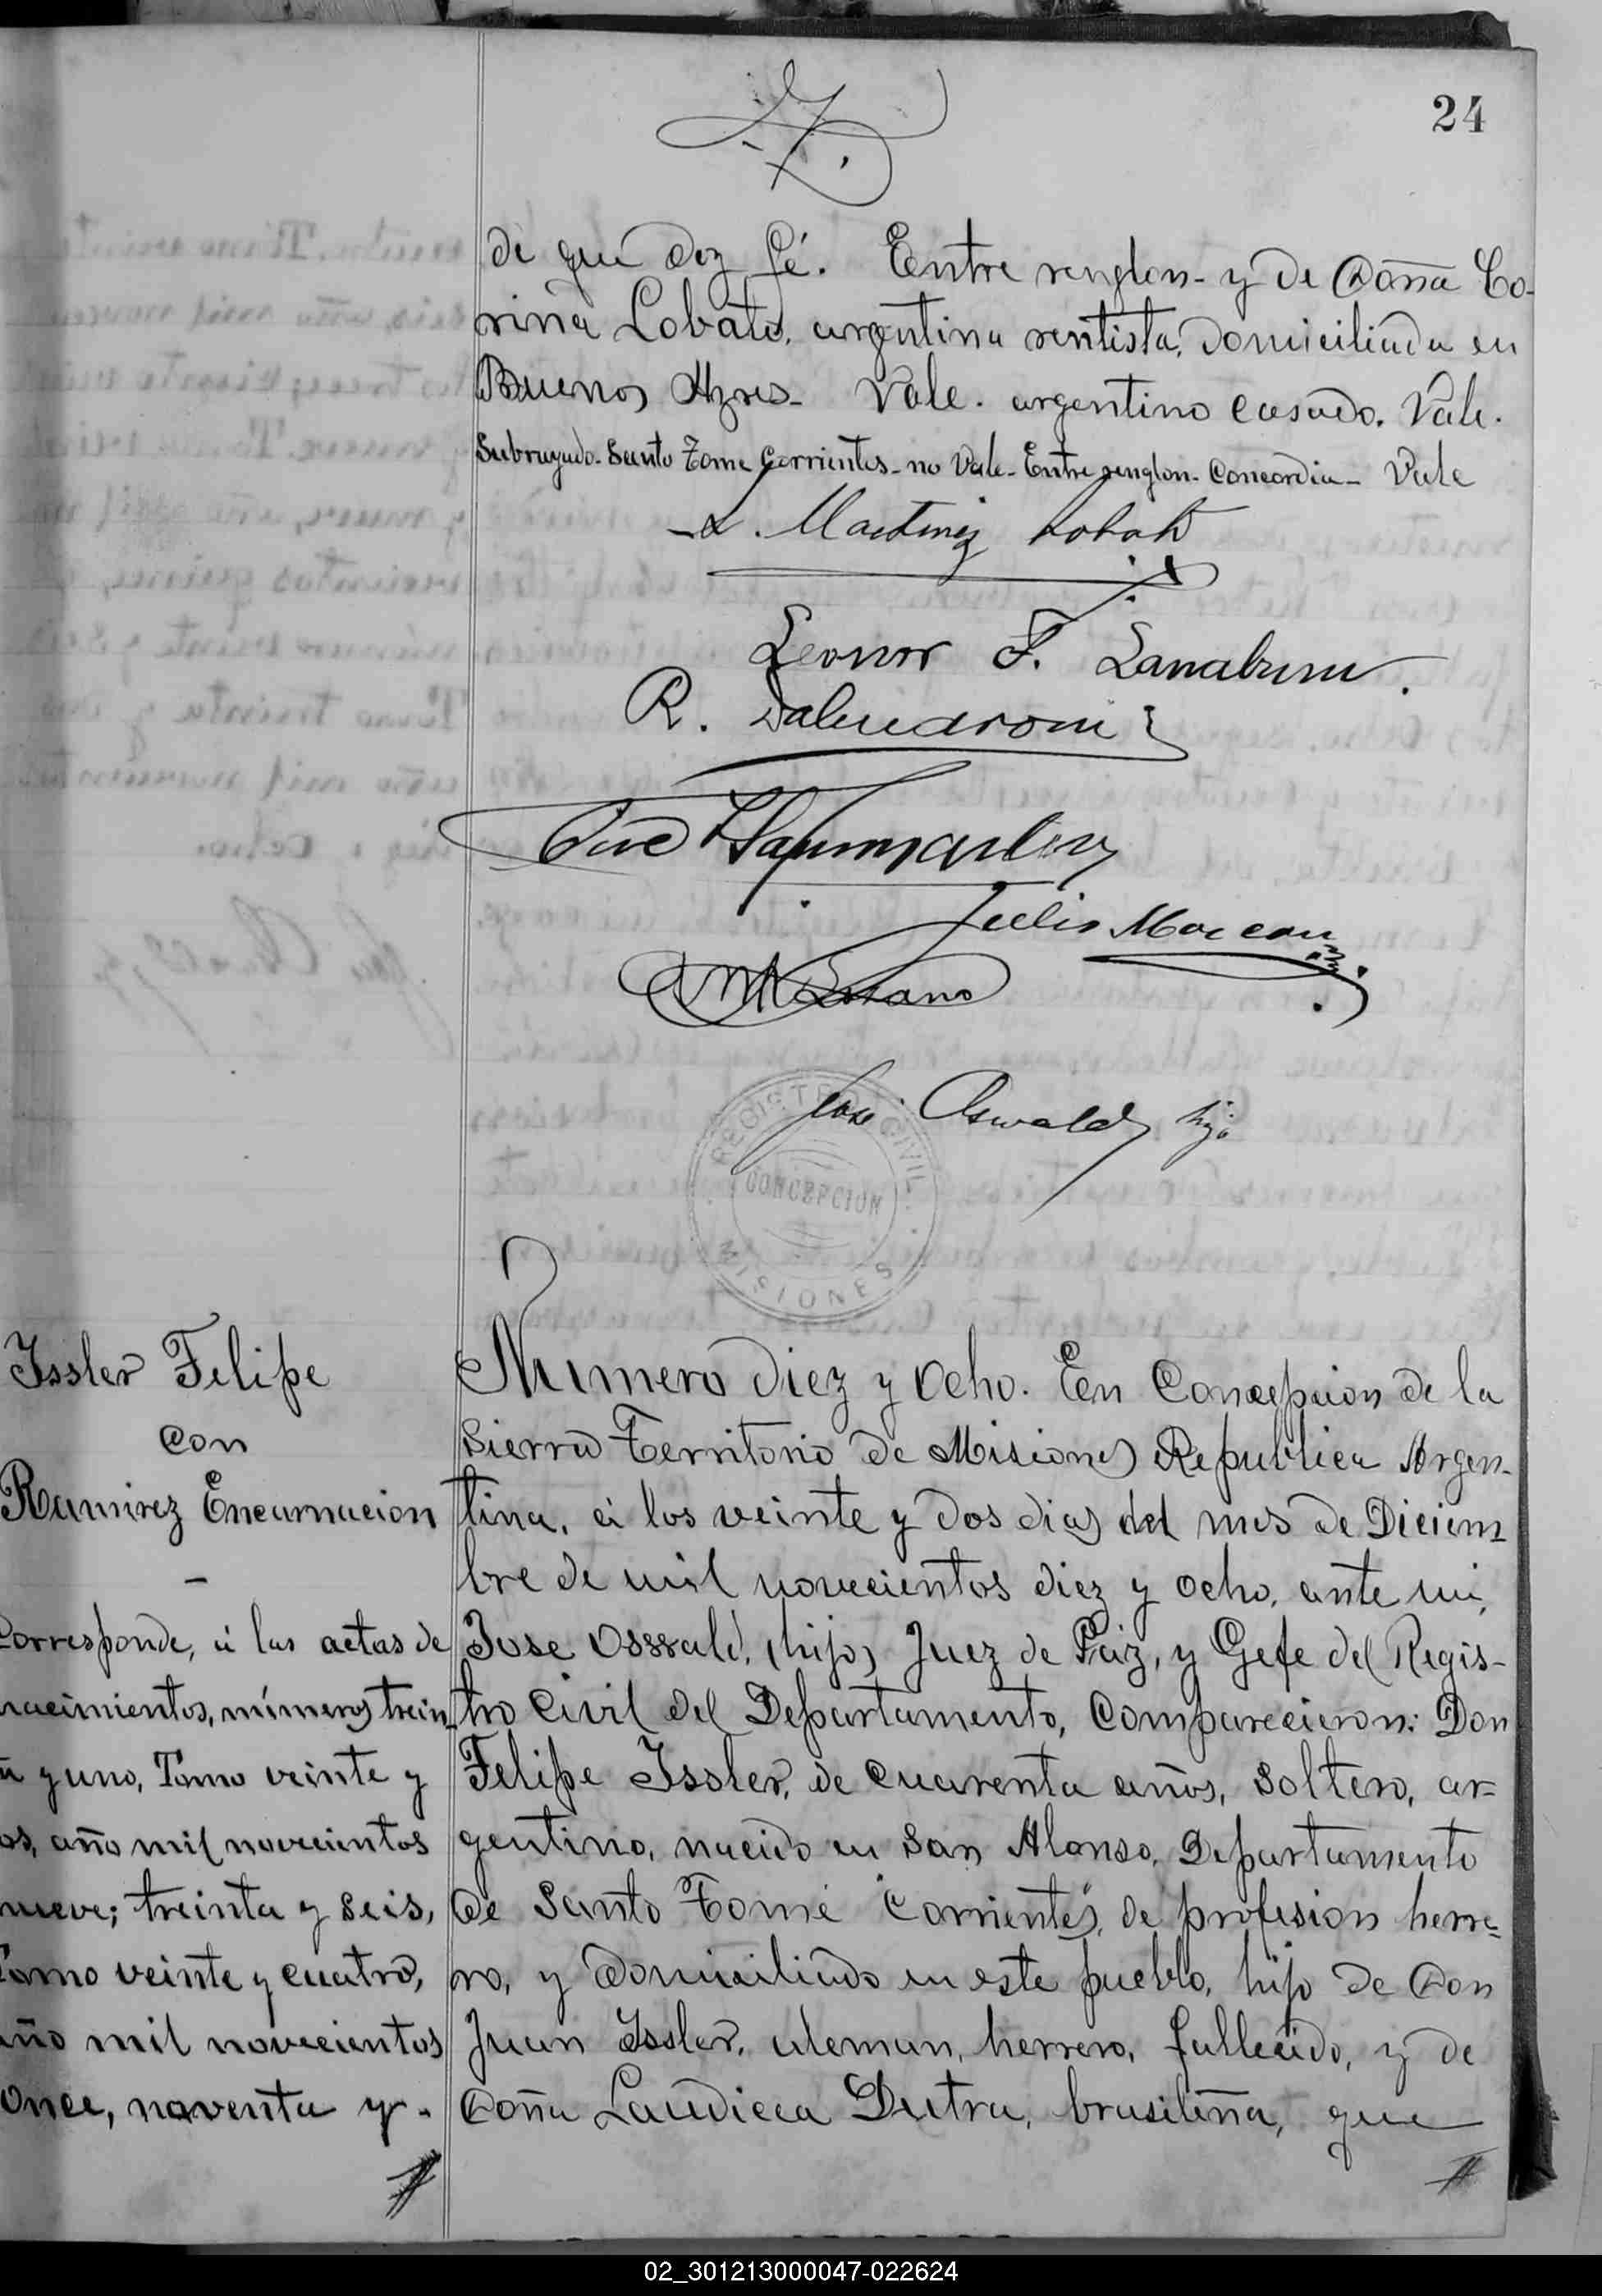 24
de que doy fé. Entre renglon- y de Doña Co-
rina Lobato, argentina rentista, domiciliada en
Buenos Ayres- Vale. argentino casado. Vale.
Subrayado. Santo Tome Corrientes- no Vale- Entre renglon- Concordia- Vale
Martinez Lobato
Leonor F. Sanabria.
R.
Julio
José Oswald hijo
REGISTRO CIVIL
CONCEPCION
MISIONES
Issler Felipe
con
Ramirez Encarnacion
Corresponde, á las actas de
nacimientos, números trein
ta y uno, Tomo veinte y
os, año mil novecientos
nueve; treinta y seis,
Tomo veinte y cuatro,
año mil novecientos
once, noventa y.
Numero diez y ocho. En Concepcion de la
Sierra Territorio de Misiones Republica Argen-
tina, á los veinte y dos dias del mes de Diciem
bre de mil novecientos diez y ocho, ante mi,
Jose Osswald, (hijo) Juez de Paz, y Gefe del Regis-
tro Civil del Departamento, Comparecieron: Don
Felipe Issler, de cuarenta años, soltero, ar-
gentino, nacido en San Alonso, Departamento
de Santo Tomé "Corrientes", de profesion herre-
ro, y domiciliado en este pueblo, hijo de Don
Juan Issler, aleman, herrero, fallecido, y de
Doña Laudicea Dutra, brasileña, que
02_301213000047-022624